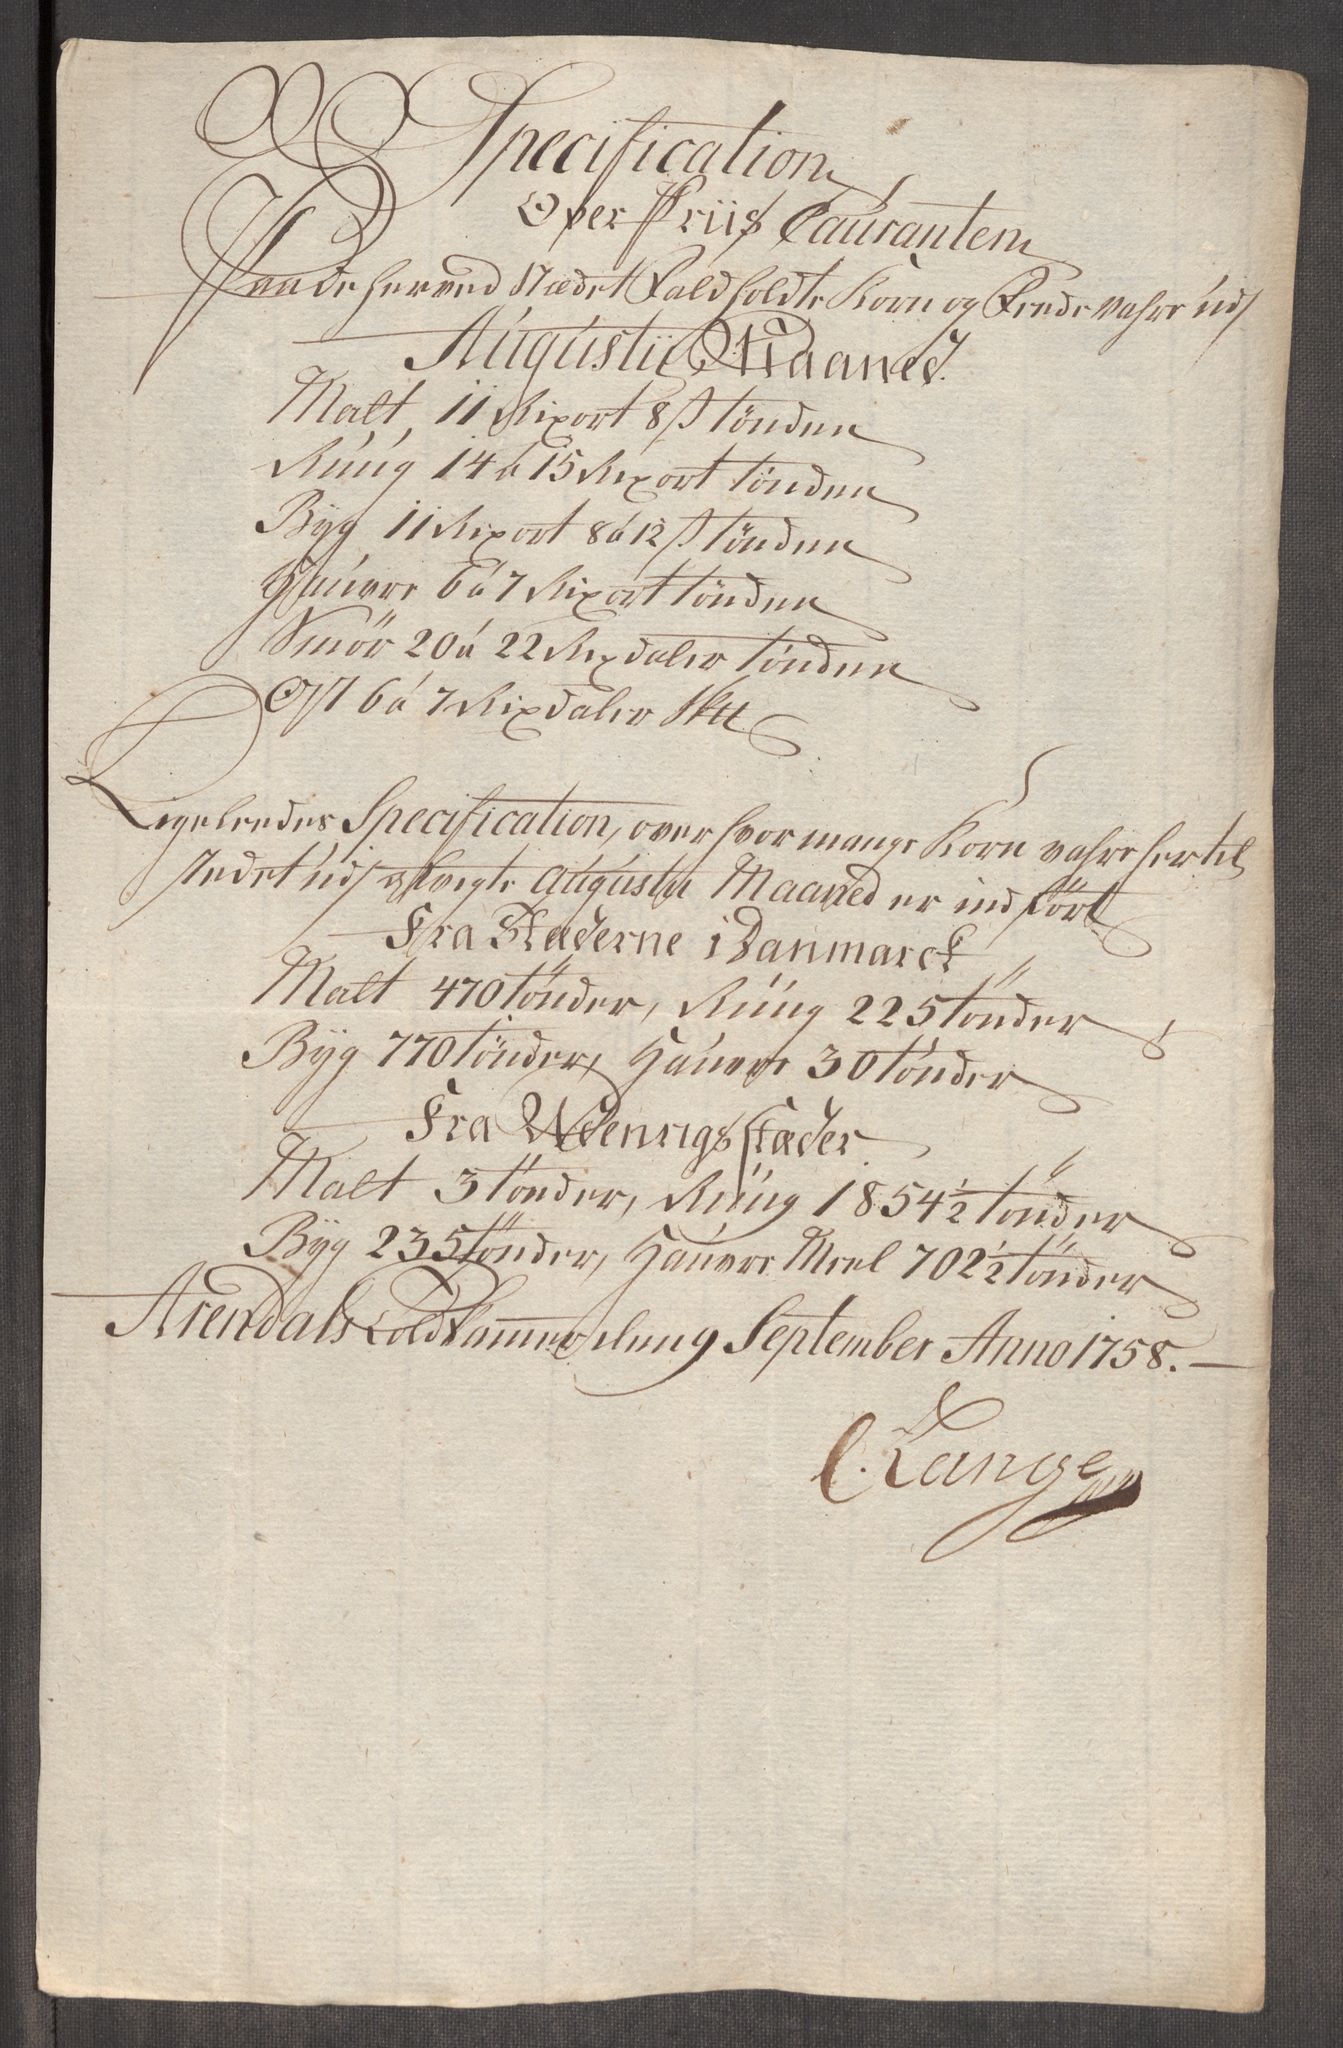 Specification
Over Priis Caurantem
Paa de herved Stædet Faldholdte Korn og Feedevahre udj
Augustii Maaned.
Malt 11 Rixort 8 s tönden
Rúúg 14 á 15 Rixort tönden
Byg 11 Rixort 8 á 12 s tönden
Haúvre 6 á 7 Rixort tönden
Smör 20 á 22 Rixdaler tönden
Ost 6 á 7 Rixdaler Sktt
Ligeleedes Specification, over hvor mange Korn vahre her til
stedet udj Augustii Maaned er indført
Fra Stæderne i Danmarck
Malt 470 tönder, Rúúg 225 tönder
Byg 770 tönder, Haúvre 30 tönder
Fra Udenrigs stæder
Malt 3 tönder, Rúúg 1854 1/2 tönder
Byg 235 tönder, Haúvre Meel 702 1/2 tönder
Arendals Toldkammer den 9 September Anno 1758.
C. Lange